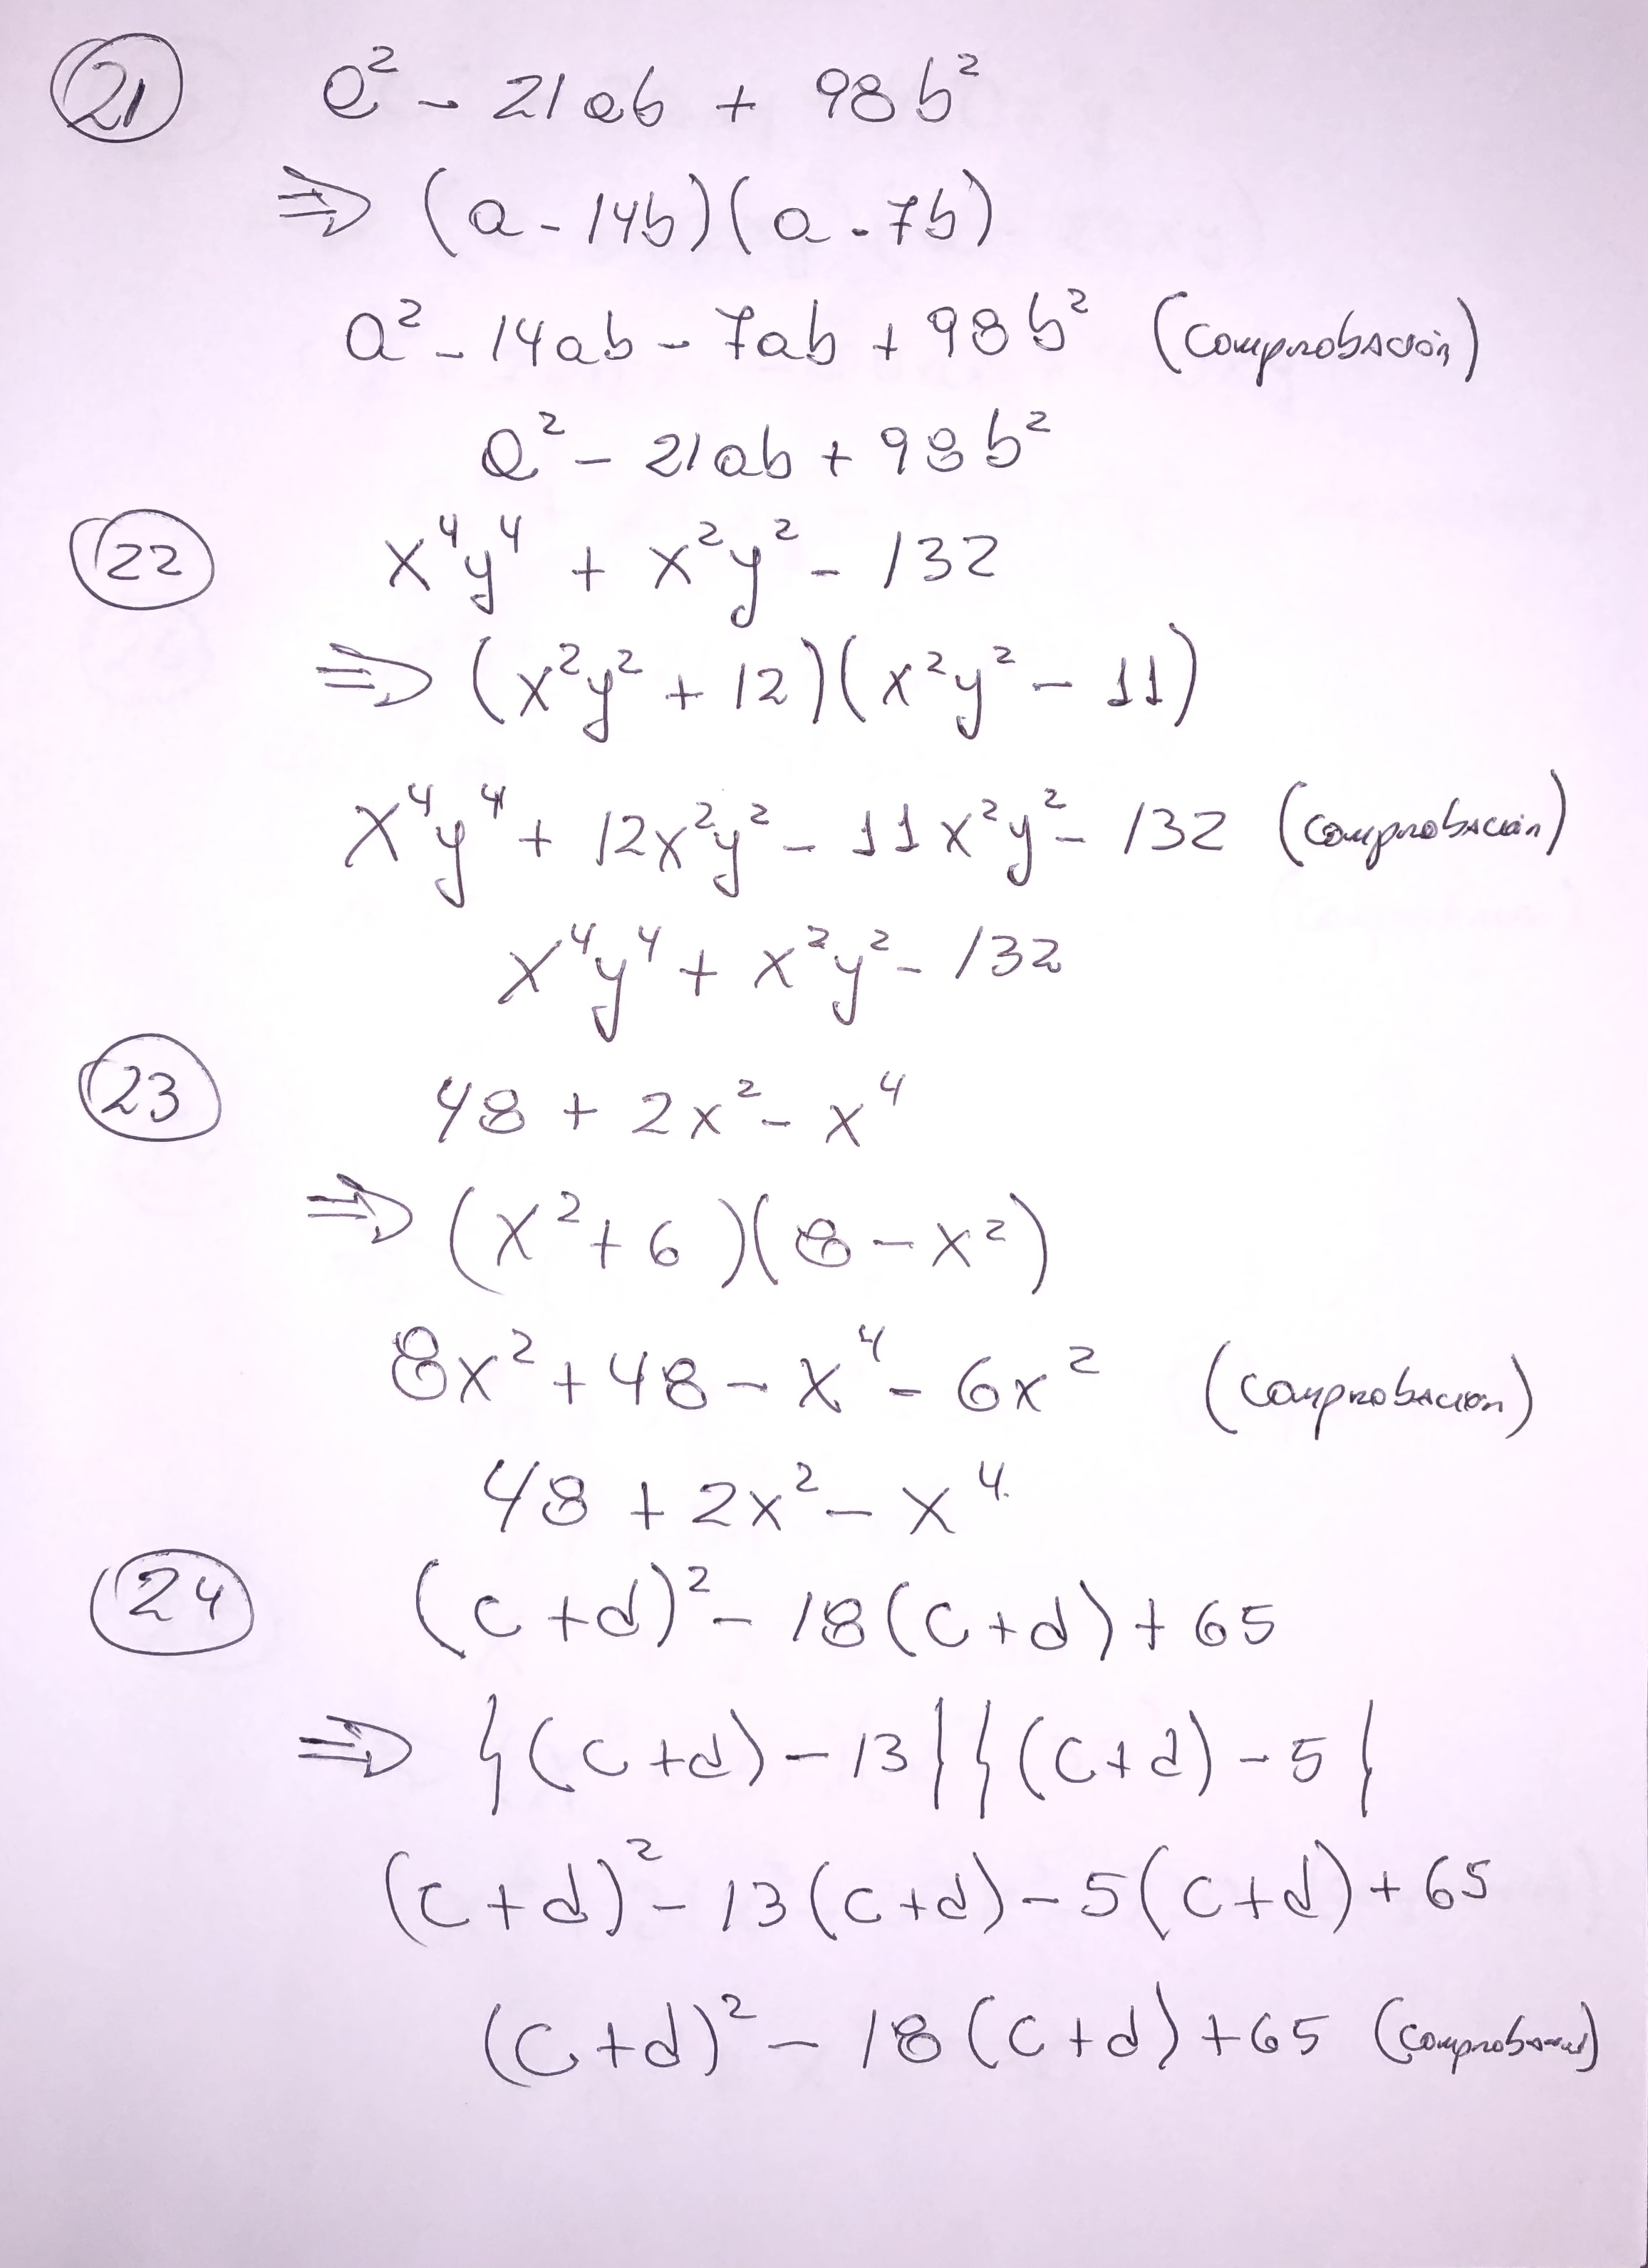 21 a² - 21ab + 98b²
⇒ (a - 14b)(a - 7b)
a² - 14ab - 7ab + 98b² (Comprobación)
a² - 21ab + 98b²
22 x⁴y⁴ + x²y² - 132
⇒ (x²y² + 12)(x²y² - 11)
x⁴y⁴ + 12x²y² - 11x²y² - 132 (Comprobación)
x⁴y⁴ + x²y² - 132
23 48 + 2x² - x⁴
⇒ (x² + 6)(8 - x²)
8x² + 48 - x⁴ - 6x² (Comprobacion)
48 + 2x² - x⁴
24 (c + d)² - 18(c + d) + 65
⇒ {(c + d) - 13}{(c + d) - 5}
(c + d)² - 13(c + d) - 5(c + d) + 65
(c + d)² - 18(c + d) + 65 (Comprobacion)